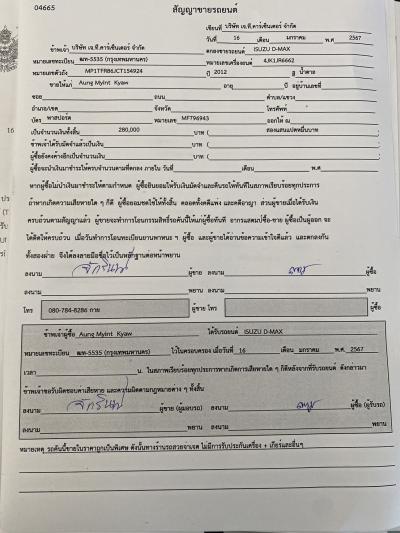 04665
สัญญาขายรถยนต์
เขียนที่ บริษัท เจ.ที.คาร์เซ็นเตอร์ จำกัด
วันที่ 16 เดือน มกราคม พ.ศ. 2567
ข้าพเจ้า บริษัท เจ.ที.คาร์เซ็นเตอร์ จำกัด ตกลงขายรถยนต์ ISUZU D-MAX
หมายเลขทะเบียน ฒท-5535 (กรุงเทพมหานคร) หมายเลขเครื่องยนต์ 4JK1JR6662
หมายเลขตัวถัง MP1TFR86JCT154924 ปี 2012 สี น้ำตาล
ขายให้แก่ Aung Myint Kyaw อายุ ปี อยู่บ้านเลขที่
ซอย ถนน ตำบล/แขวง
อำเภอ/เขต จังหวัด โทรศัพท์
บัตร พาสปอร์ต หมายเลข MF796943 ออกให้ ณ
เป็นจำนวนเงินทั้งสิ้น 280,000 บาท ( สองแสนแปดหมื่นบาท
ข้าพเจ้าได้รับมัดจำแล้วเป็นเงิน บาท (
ผู้ซื้อยังคงค้างอีกเป็นจำนวนเงิน บาท (
ผู้ซื้อจะนำเงินมาชำระให้ครบจำนวนตามที่ตกลง ภายใน วันที่ เดือน พ.ศ.
หากผู้ซื้อไม่นำเงินมาชำระให้ตามกำหนด ผู้ซื้อยินยอมให้ริบเงินมัดจำและคืนรถให้ทันทีในสภาพเรียบร้อยทุกประการ
ถ้าหากเกิดความเสียหายใด ๆ ก็ดี ผู้ซื้อยอมชดใช้ให้ทั้งสิ้น ตลอดทั้งคดีแพ่ง และคดีอาญา ส่วนผู้ขายเมื่อได้รับเงิน
ครบถ้วนตามสัญญาแล้ว ผู้ขายจะทำการโอนกรรมสิทธิ์รถคันนี้ให้แก่ผู้ซื้อทันที อากรแสตมป์ซื้อ-ขาย ผู้ซื้อเป็นผู้ออก จะ
ได้คิดให้ครบถ้วน เมื่อวันทำการโอนทะเบียนยานพาหนะ ฯ ผู้ซื้อ และผู้ขายได้อ่านข้อความเข้าใจดีแล้ว และตกลงกัน
ทั้งสองฝ่าย จึงได้ลงลายมือชื่อไว้เป็นหลักฐานต่อหน้าพยาน
ลงนาม ผู้ขาย ลงนาม ผู้ซื้อ
ลงนาม พยาน ลงนาม พยาน
โทร 080-784-8286 กาย ผู้ขาย โทร ผู้ซื้อ
ข้าพเจ้าผู้ซื้อ Aung Myint Kyaw ได้รับรถยนต์ ISUZU D-MAX
หมายเลขทะเบียน ฒท-5535 (กรุงเทพมหานคร) ไว้ในครอบครอง เมื่อวันที่ 16 เดือน มกราคม พ.ศ. 2567
เวลา น. ในสภาพเรียบร้อยทุกประการหากเกิดการเสียหายใด ๆ ก็ดีหลังจากที่รับรถยนต์ ดังกล่าวมา
ข้าพเจ้าขอรับผิดชอบค่าเสียหาย และความผิดตามกฎหมายต่าง ๆ ทั้งสิ้น
ลงนาม ผู้ขาย (ผู้มอบรถ) ลงนาม ผู้ซื้อ (ผู้รับรถ)
ลงนาม พยาน ลงนาม พยาน
หมายเหตุ รถคันนี้ขายในราคาถูกเป็นพิเศษ ดังนั้นทางร้านรถสวยจ่าเจต ไม่มีการรับประกันเครื่อง + เกียร์และอื่นๆ